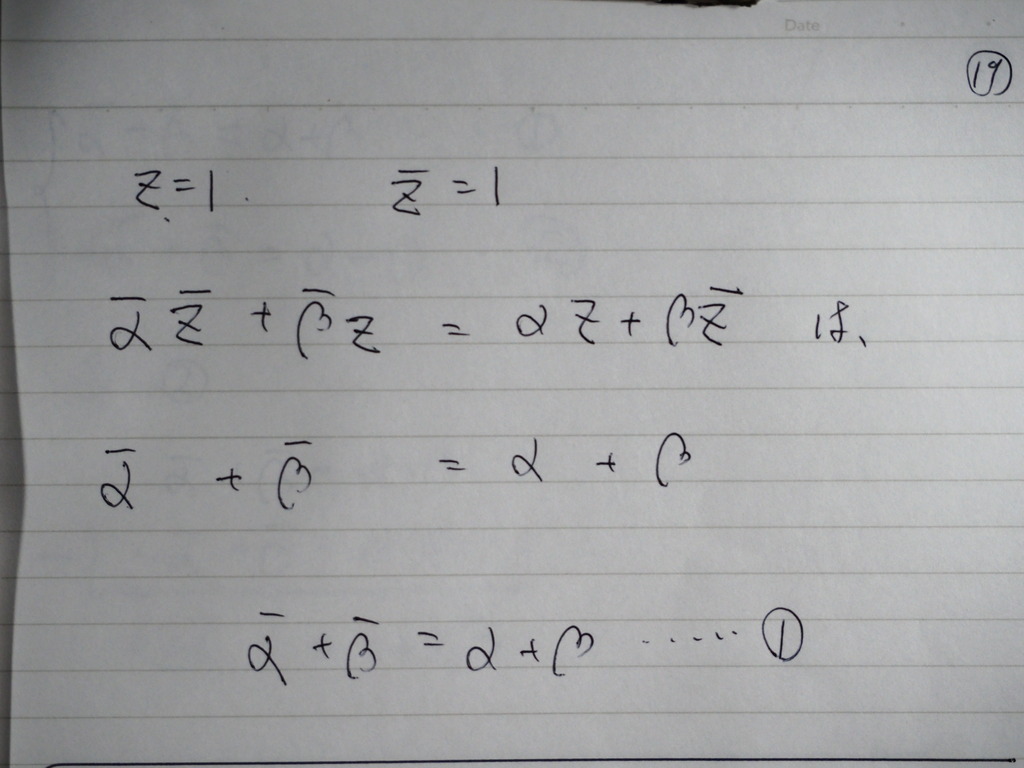 Date
⑲
z = 1. z̄ = 1
ᾱ z̄ + β̄ z = α z + β z̄ は、
ᾱ + β̄ = α + β
ᾱ + β̄ = α + β ‥‥‥ ①